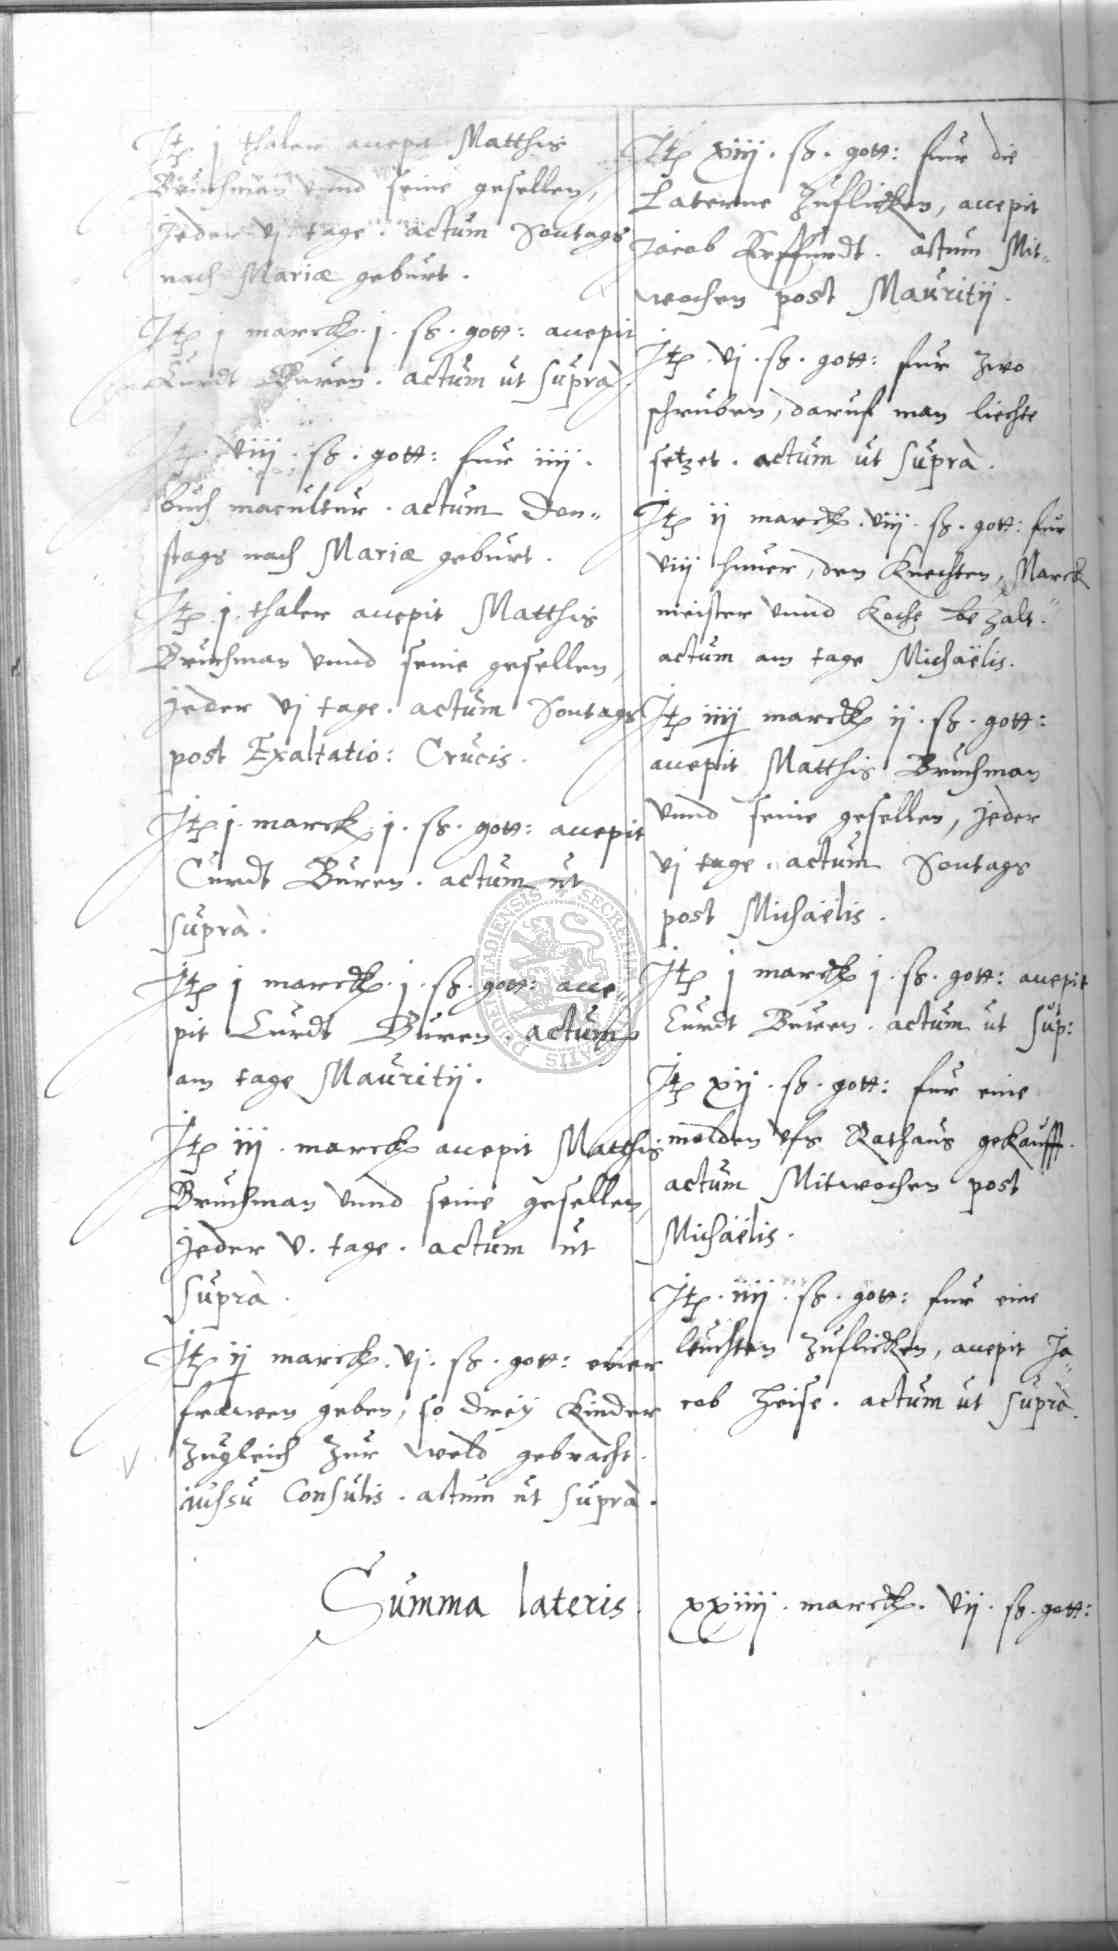 Jtz j thaler accepit Matthis
Bruchman vnnd seine gesellen,
jeder vj tage. actum Sontags
nach Mariæ geburt.
Jtz j marck. j. sß. gott: accepit
Curdt Buren. actum ut suprà.
Jtz viij. sß. gott: fur iiij.
buch macultur. actum Don„
stags nach Mariæ geburt.
Jtz j. thaler accepit Matthis
Bruchman vnnd seine gesellen,
jeder vj tage. actum Sontags
post Exaltatio: Crucis.
Jtz j. marck j. sß. gott: accepit
Curdt Buren. actum ut
suprà.
Jtz j marck. j. sß. gott: acce„
pit Curdt Buren. actum
am tage Mauritij.
Jtz iij. marck accepit Matthis
Bruchman vnnd seine gesellen,
jeder v. tage. actum ut
suprà.
Jtz ij marck. vj. sß. gott: einer
frawen geben, so dreÿ Kinder
zugleich zur weld gebracht.
iussu Consulis. actum ut suprà.
Jtz xiiij. sß. gott: fur die
Laterne zuflicken, accepit
Jacob. actum Mit„
wochen post Mauritij.
Jtz. vj. sß. gott: fur zwo
schruben, daruf man liechte
setzet. actum ut suprà.
Jtz ij marck. viij. sß. gott: fur
viij huner, den Knechten, Marck
meister vnnd Koche bezalt.
actum am tage Michaëlis.
Jtz iiij marck ij. sß. gott:
accepit Matthis Bruchman
vnnd seine gesellen, jeder
vj tage. actum Sontags
post Michaëlis.
Jtz j marck j. sß. gott: accepit
Curdt Buren. actum ut sup:
Jtz xij. sß. gott: fur eine
molden vfs Rathaus gekaufft.
actum Mitwochen post
Michaëlis.
Jtz. iiij. sß. gott: fur eine
leuchten zuflicken, accepit Ja„
cob Heise. actum ut suprà.
Summa lateris. xxiiij. marck. vij. sß. gott: